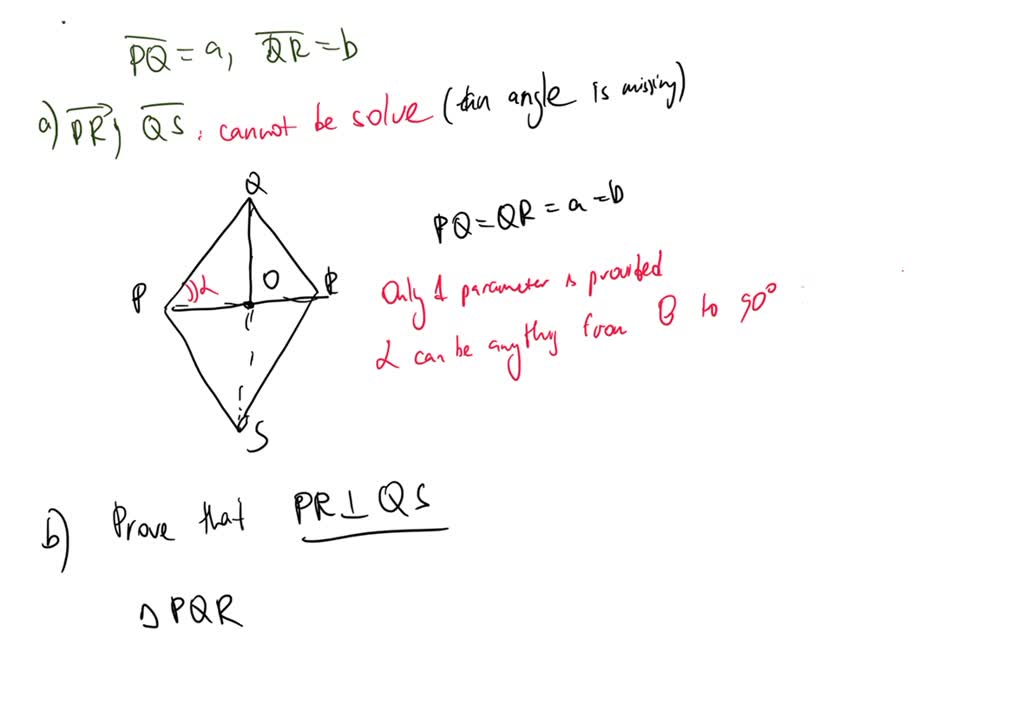 PQ = a, QR = b
a) PR, QS, cannot be solve ( an angle is missing)
Q
PQ = QR = a = b
P α O R
Only 1 parameter is provided
α can be anything from 0 to 90°
S
b) Prove that PR ⊥ QS
△ PQR